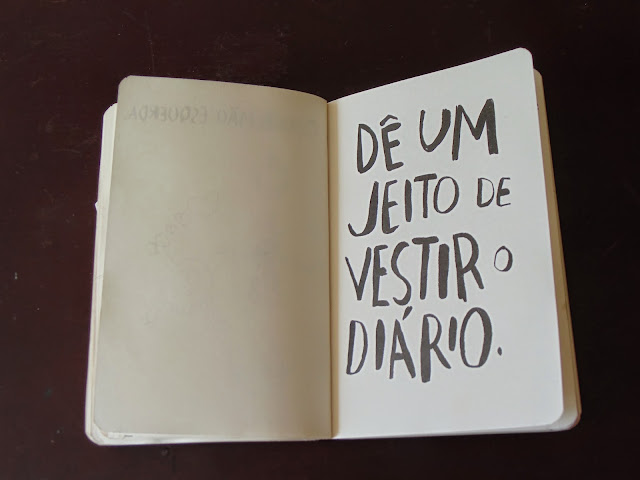 DÊ UM
JEITO DE
VESTIR O
DIÁRIO.